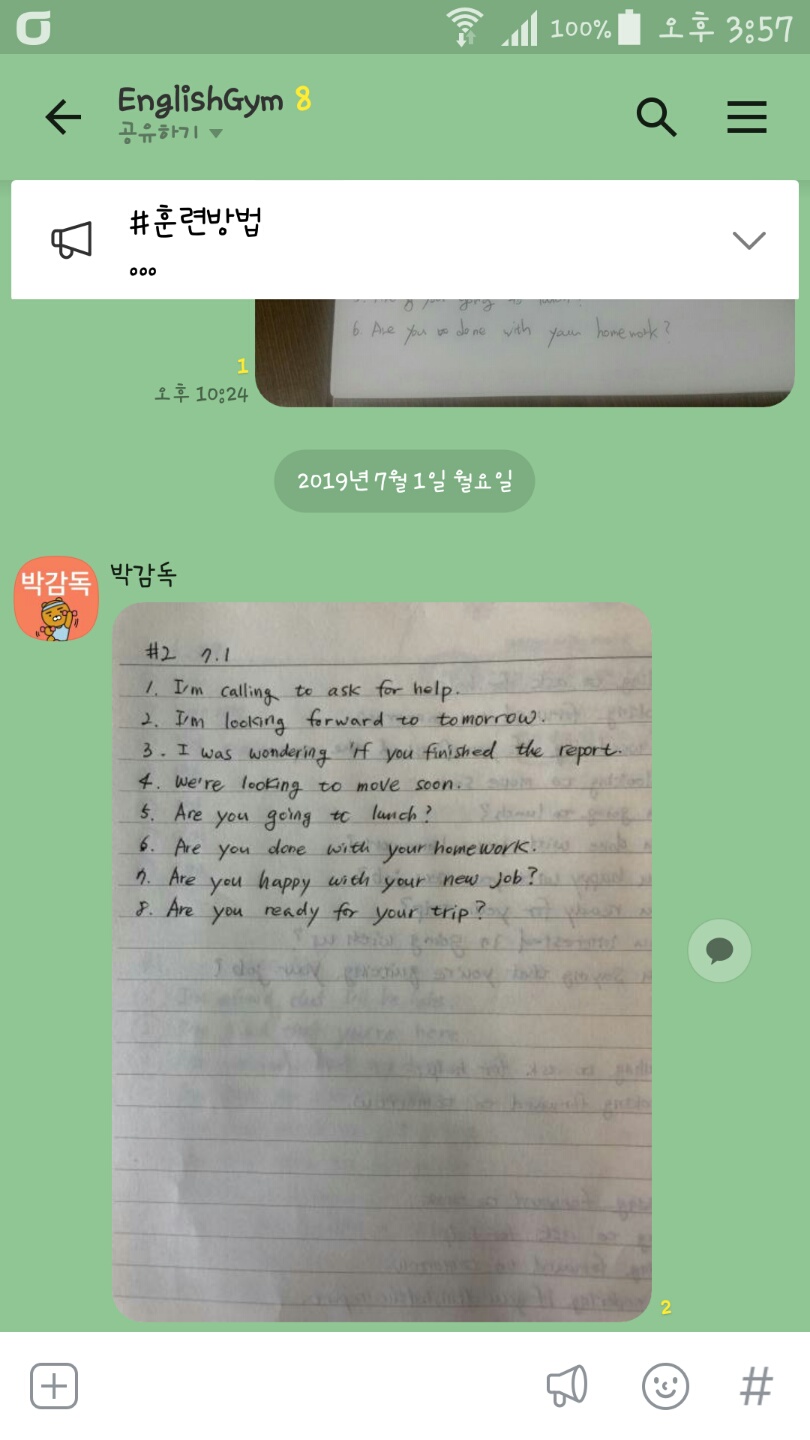 100% 오후 3:57
EnglishGym 8
공유하기
#훈련방법
...
6. Are you done with your homework?
1
오후 10:24
2019년 7월 1일 월요일
박감독
박감독
#2 7.1
1. I'm calling to ask for help.
2. I'm looking forward to tomorrow.
3. I was wondering if you finished the report.
4. We're looking to move soon.
5. Are you going to lunch?
6. Are you done with your homework.
7. Are you happy with your new job?
8. Are you ready for your trip?
2
#